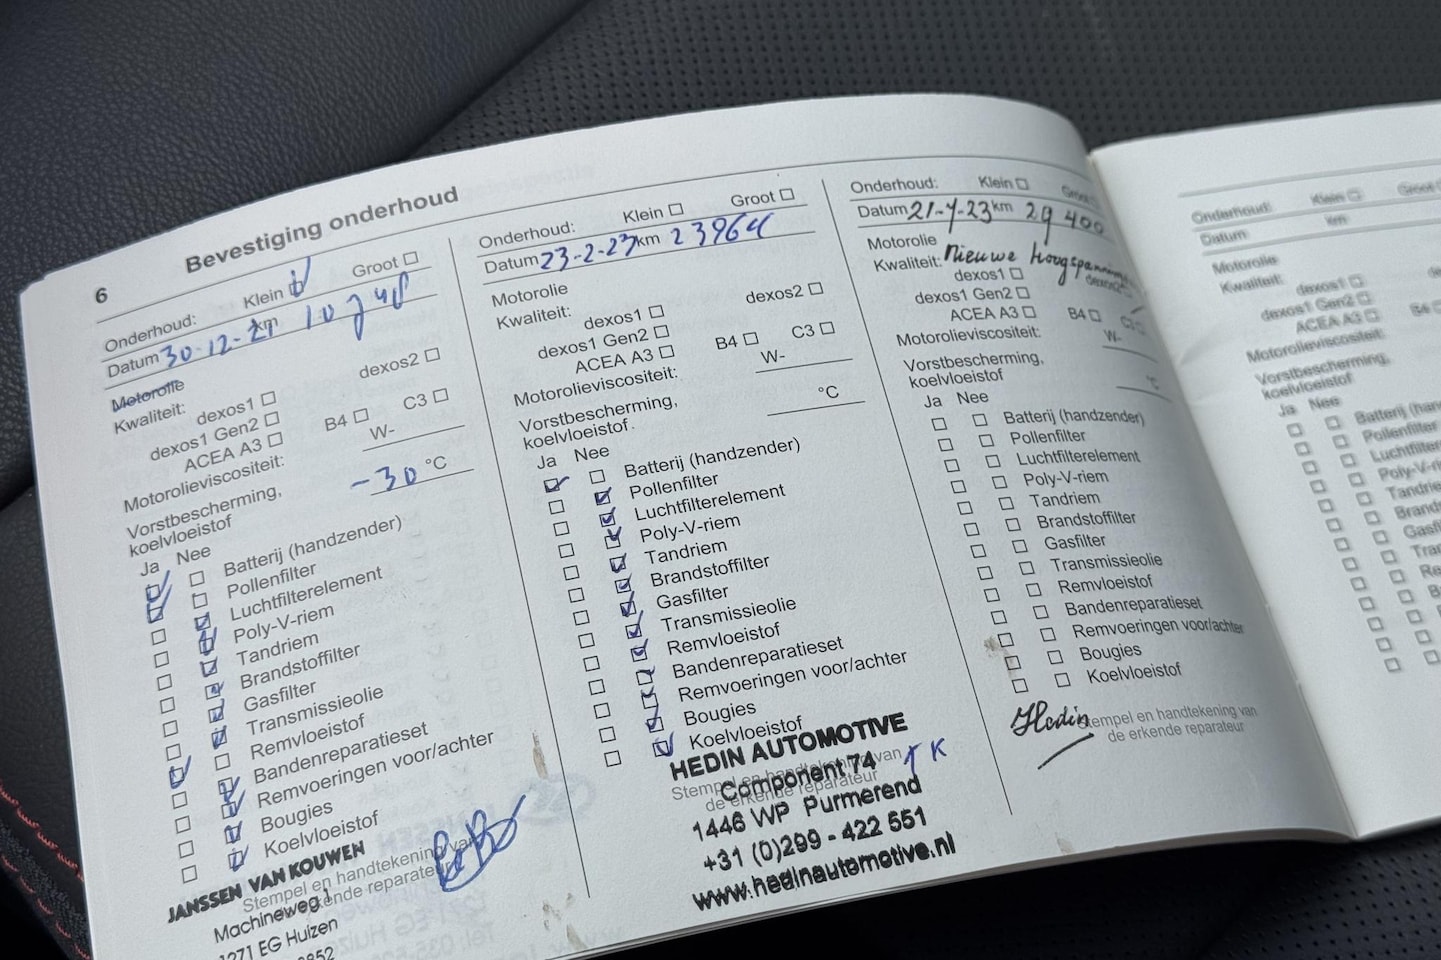 6
Bevestiging onderhoud
Onderhoud: Klein Groot
Datum 30-12-21 km
Motorolie
Kwaliteit: dexos1 dexos2
dexos1 Gen2
ACEA A3 B4 C3
Motorolieviscositeit: W-
Vorstbescherming,
koelvloeistof -30 °C
Ja Nee
Batterij (handzender)
Pollenfilter
Luchtfilterelement
Poly-V-riem
Tandriem
Brandstoffilter
Gasfilter
Transmissieolie
Remvloeistof
Bandenreparatieset
Remvoeringen voor/achter
Bougies
Koelvloeistof
Stempel en handtekening van
de erkende reparateur
JANSSEN VAN KOUWEN
Machineweg 1
1271 EG Huizen
Onderhoud: Klein Groot
Datum 23-2-23 km 23964
Motorolie
Kwaliteit: dexos1 dexos2
dexos1 Gen2
ACEA A3 B4 C3
Motorolieviscositeit: W-
Vorstbescherming,
koelvloeistof. °C
Ja Nee
Batterij (handzender)
Pollenfilter
Luchtfilterelement
Poly-V-riem
Tandriem
Brandstoffilter
Gasfilter
Transmissieolie
Remvloeistof
Bandenreparatieset
Remvoeringen voor/achter
Bougies
Koelvloeistof
Stempel en handtekening van
de erkende reparateur
HEDIN AUTOMOTIVE
Component 74
1446 WP Purmerend
+31 (0)299 - 422 551
www.hedinautomotive.nl
Onderhoud: Klein Groot
Datum km 29 400
Motorolie
Kwaliteit: Nieuwe
dexos1 dexos2
dexos1 Gen2
ACEA A3 B4 C3
Motorolieviscositeit: W-
Vorstbescherming,
koelvloeistof °C
Ja Nee
Batterij (handzender)
Pollenfilter
Luchtfilterelement
Poly-V-riem
Tandriem
Brandstoffilter
Gasfilter
Transmissieolie
Remvloeistof
Bandenreparatieset
Remvoeringen voor/achter
Bougies
Koelvloeistof
Hedin
Stempel en handtekening van
de erkende reparateur
Onderhoud: Klein Groot
Datum km
Motorolie
Kwaliteit:
dexos1
dexos1 Gen2
ACEA A3
Motorolieviscositeit:
Vorstbescherming,
koelvloeistof
Ja Nee
Pollenfilter